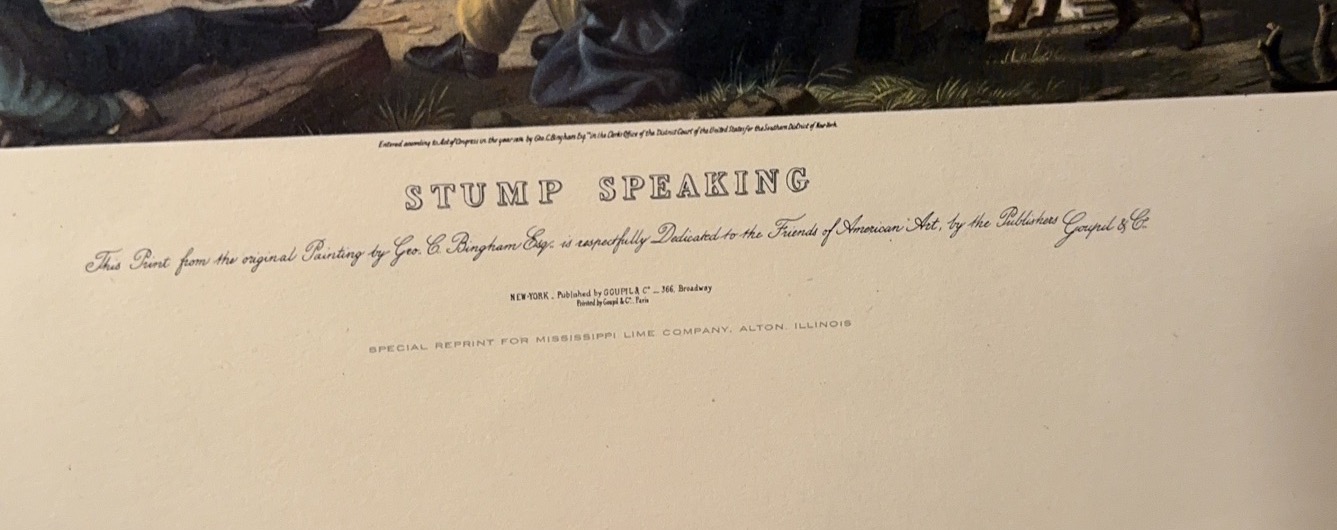 Entered according to Act of Congress in the year by Geo. C. Bingham Esqre in the Clerks Office of the District Court of the United States for the Southern District of New York.
STUMP SPEAKING
This Print from the original Painting by Geo. C. Bingham Esq. is respectfully Dedicated to the Friends of American Art, by the Publishers Goupil & Co.
NEW-YORK. Published by GOUPIL & Co _ 366, Broadway
Printed by Goupil & Co. Paris
SPECIAL REPRINT FOR MISSISSIPPI LIME COMPANY, ALTON, ILLINOIS